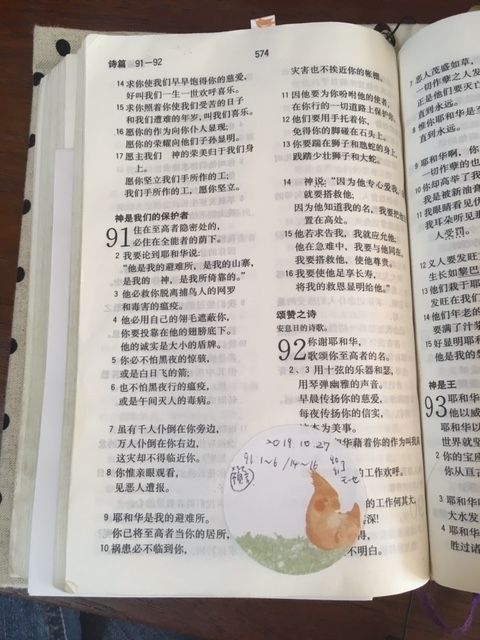 诗篇 91－92
574
14 求你使我们早早饱得你的慈爱，
好叫我们一生一世欢呼喜乐。
15 求你照着你使我们受苦的日子
和我们遭难的年岁，叫我们喜乐。
16 愿你的作为向你仆人显现；
愿你的荣耀向他们子孙显明。
17 愿主我们　神的荣美归于我们身
上。
愿你坚立我们手所作的工；
我们手所作的工，愿你坚立。
神是我们的保护者
91 住在至高者隐密处的，
必住在全能者的荫下。
2 我要论到耶和华说：
“他是我的避难所，是我的山寨，
是我的　神，是我所倚靠的。”
3 他必救你脱离捕鸟人的网罗
和毒害的瘟疫。
4 他必用自己的翎毛遮蔽你，
你要投靠在他的翅膀底下。
他的诚实是大小的盾牌。
5 你必不怕黑夜的惊骇，
或是白日飞的箭；
6 也不怕黑夜行的瘟疫，
或是午间灭人的毒病。
7 虽有千人仆倒在你旁边，
万人仆倒在你右边，
这灾却不得临近你。
8 你惟亲眼观看，
见恶人遭报。
9 耶和华是我的避难所。
你已将至高者当你的居所，
10 祸患必不临到你，
灾害也不挨近你的帐棚。
11 因他要为你吩咐他的使者，
在你行的一切道路上保护你。
12 他们要用手托着你，
免得你的脚碰在石头上。
13 你要踹在狮子和虺蛇的身上，
践踏少壮狮子和大蛇。
14 神说：“因为他专心爱我，
就要搭救他；
因为他知道我的名，我要把他
置在高处。
15 他若求告我，我就应允他；
他在急难中，我要与他同在，
我要搭救他，使他尊贵。
16 我要使他足享长寿，
将我的救恩显明给他。”
颂赞之诗
安息日的诗歌。
92 称谢耶和华，
歌颂你至高者的名。
2、3 用十弦的乐器和瑟，
用琴弹幽雅的声音。
早晨传扬你的慈爱，
每夜传扬你的信实，
这本为美事。
华藉着你的作为叫我
的工作欢呼。
的工作何其大，
深！
得，
不明白。
2019 10 27
91 1～6 /14～16
恶人茂盛如草，
一切作孽之人发
正是他们要灭亡
直到永远。
8 惟你耶和华是至
直到永远。
9 耶和华啊，你
一切作孽的也
10 你却高举了我
我是被新油膏
11 我眼睛看见仇
我耳朵听见那
人受罚。
12 义人要发旺
生长如黎巴
13 他们栽于耶
发旺在我们
14 他们年老的
要满了汁浆
15 好显明耶和
他是我的
神是王
93 耶和
他以威
耶和华以
世界就坚
2 你的宝座
你从亘古
3 耶和华
大水发
4 耶和华
胜过诸